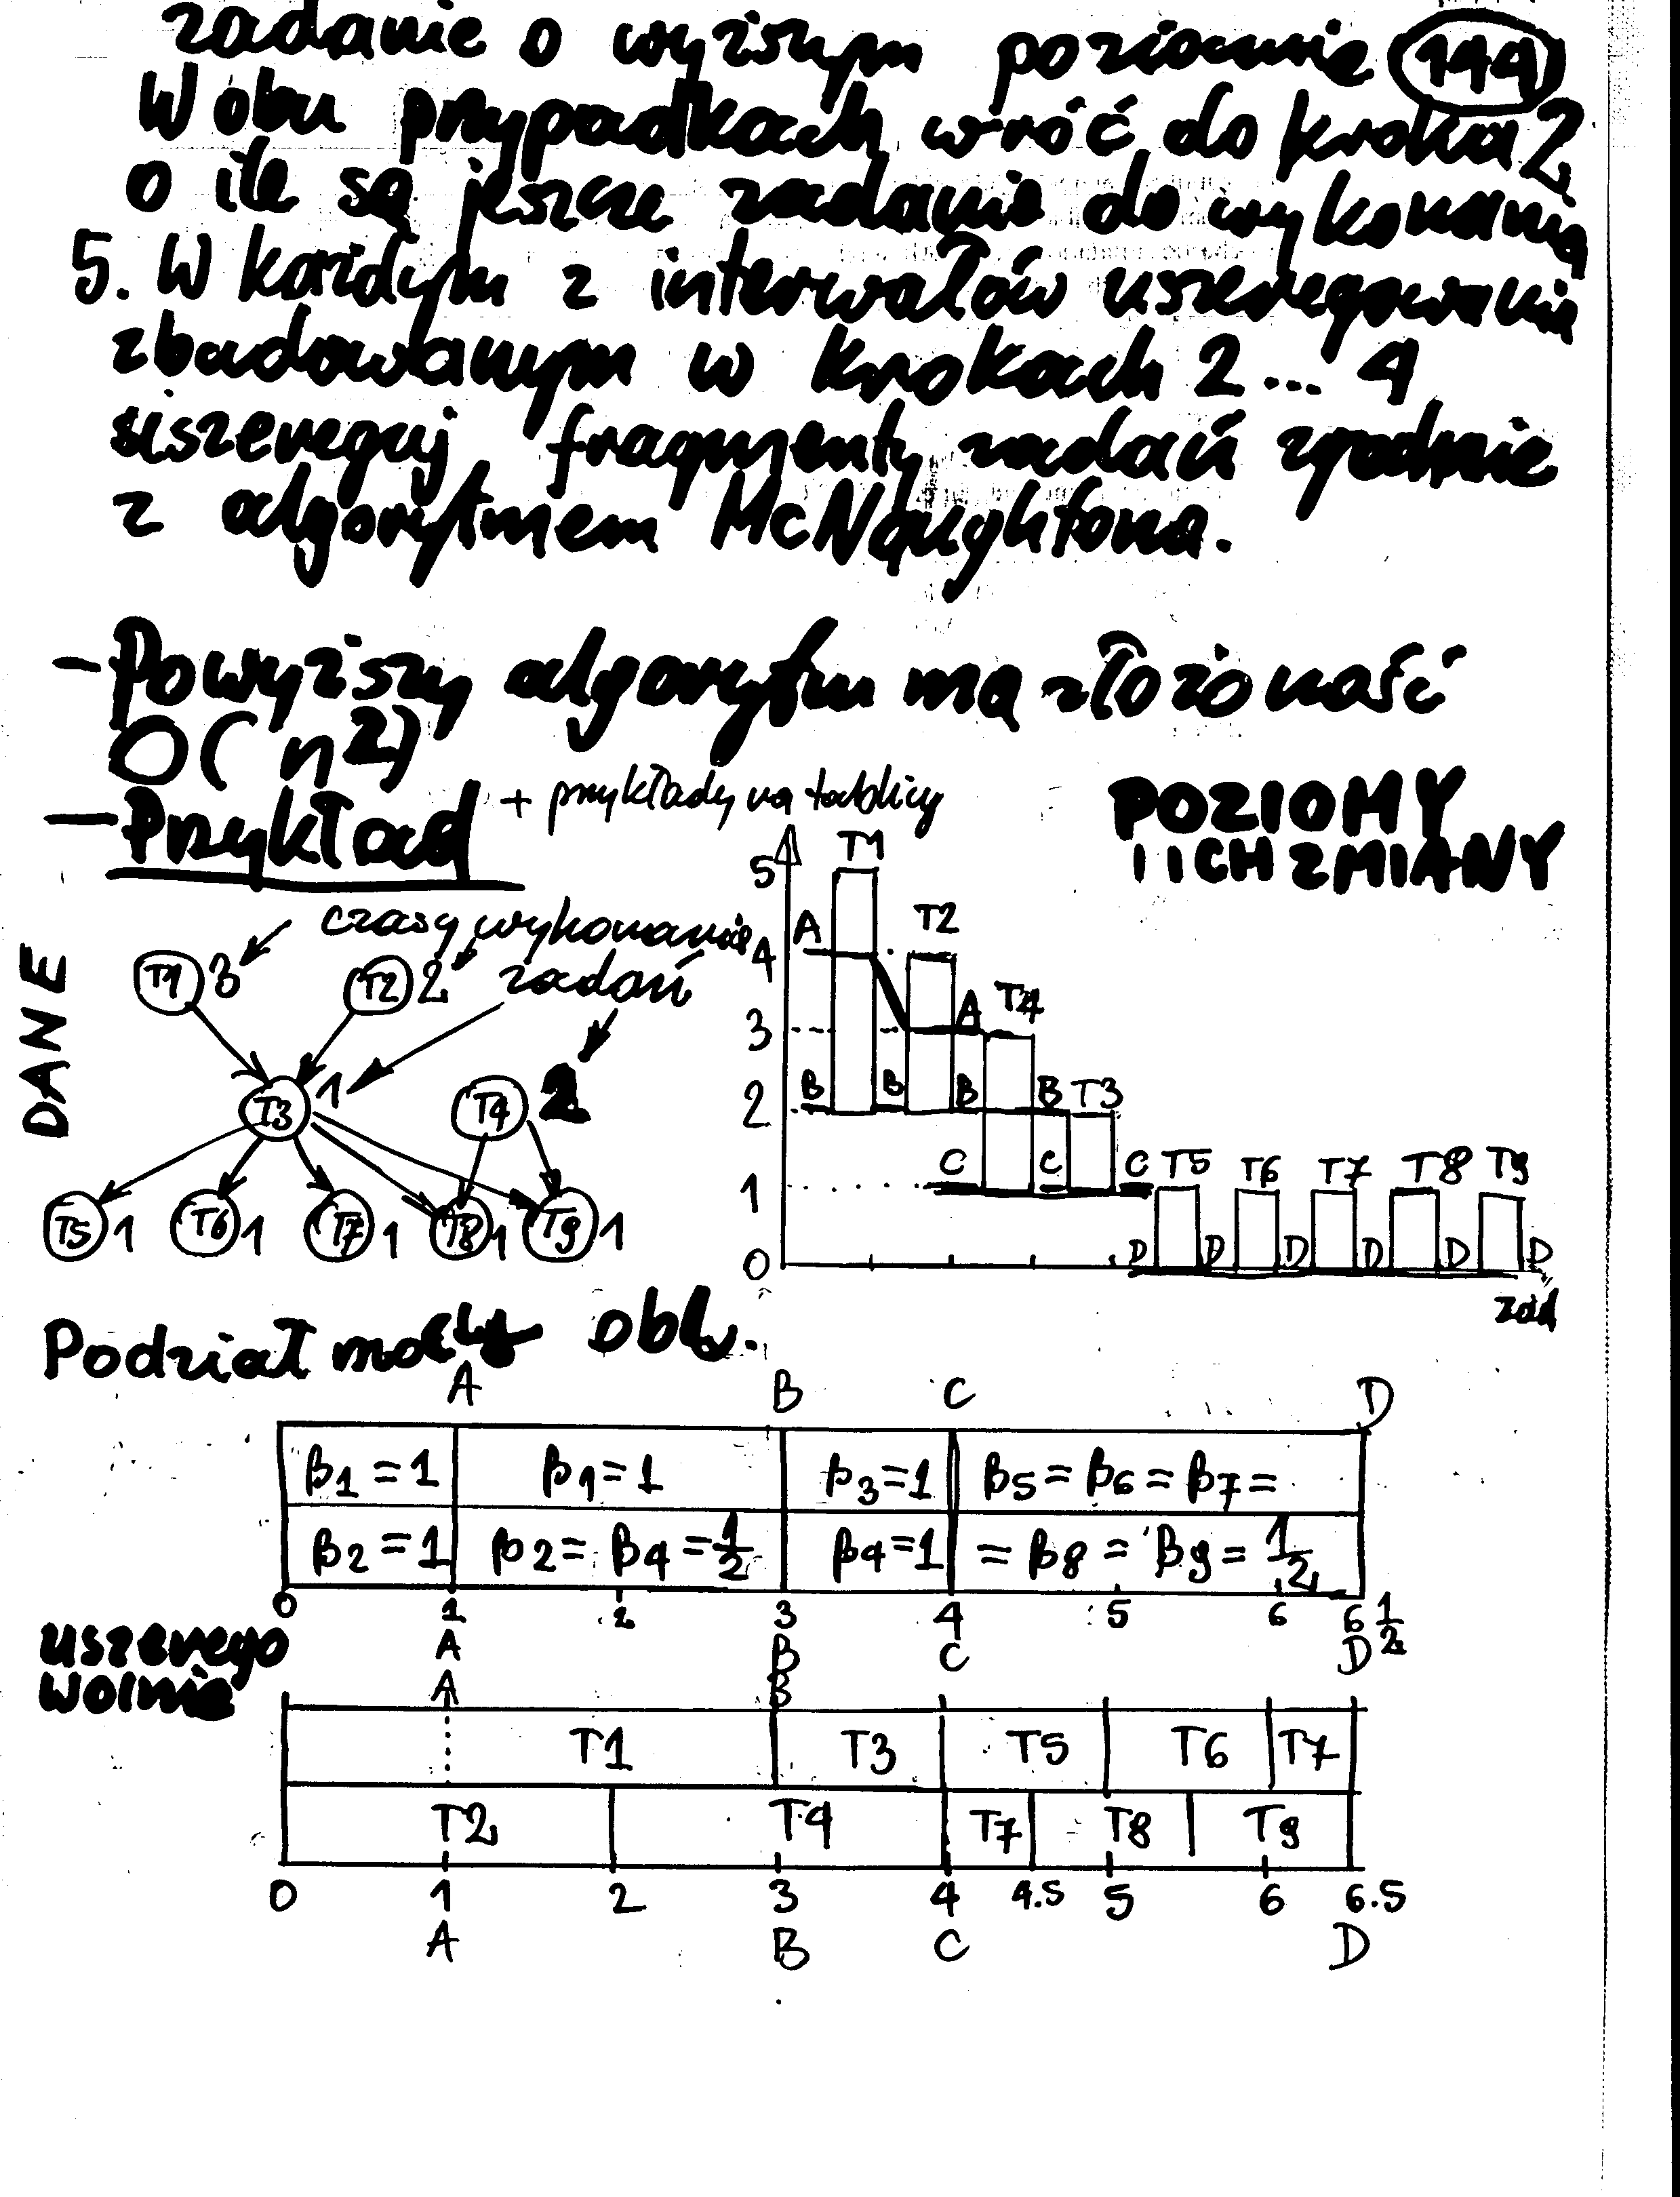 zadanie o wyższym poziomie 144
W obu przypadkach wróć do kroku 2
o ile są jeszcze zadania do wykonania
5. W każdym z interwałów uszeregowania
zbudowanym w krokach 2...4
uszereguj fragmenty zadań zgodnie
z algorytmem McNaughtona.
- Powyższy algorytm ma złożoność
O(n²)
- Przykład + przykłady na tablicy
POZIOMY
I ICH ZMIANY
DANE
czasy wykonania
zadań
T1 3 T2 2
T3 1 T4 2
T5 1 T6 1 T7 1 T8 1 T9 1
5 T1
A 4 T2
3 A T4
2 B B B B T3
1 C C C T5 T6 T7 T8 T9
0 D D D D D D
zad
Podział mocy obl.
A B C D
β1 = 1 β1 = 1 β3 = 1 β5 = β6 = β7 =
β2 = 1 β2 = β4 = 1/2 β4 = 1 = β8 = β9 = 1/2
0 1 2 3 4 5 6 6 1/2
A B C D
uszerego
wolnie
A B
T1 T3 T5 T6 T7
T2 T4 T7 T8 T9
0 1 2 3 4 4.5 5 6 6.5
A B C D